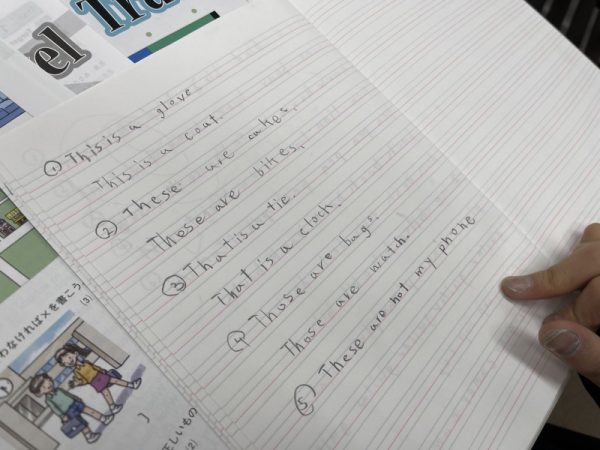 el Tra
① This is a glove
This is a coat.
② These are cakes.
Those are bikes.
③ That is a tie.
That is a clock.
④ Those are bags.
Those are watch.
⑤ These are not my phone
わなければ×を書こう
(3)
正しいもの
(2)